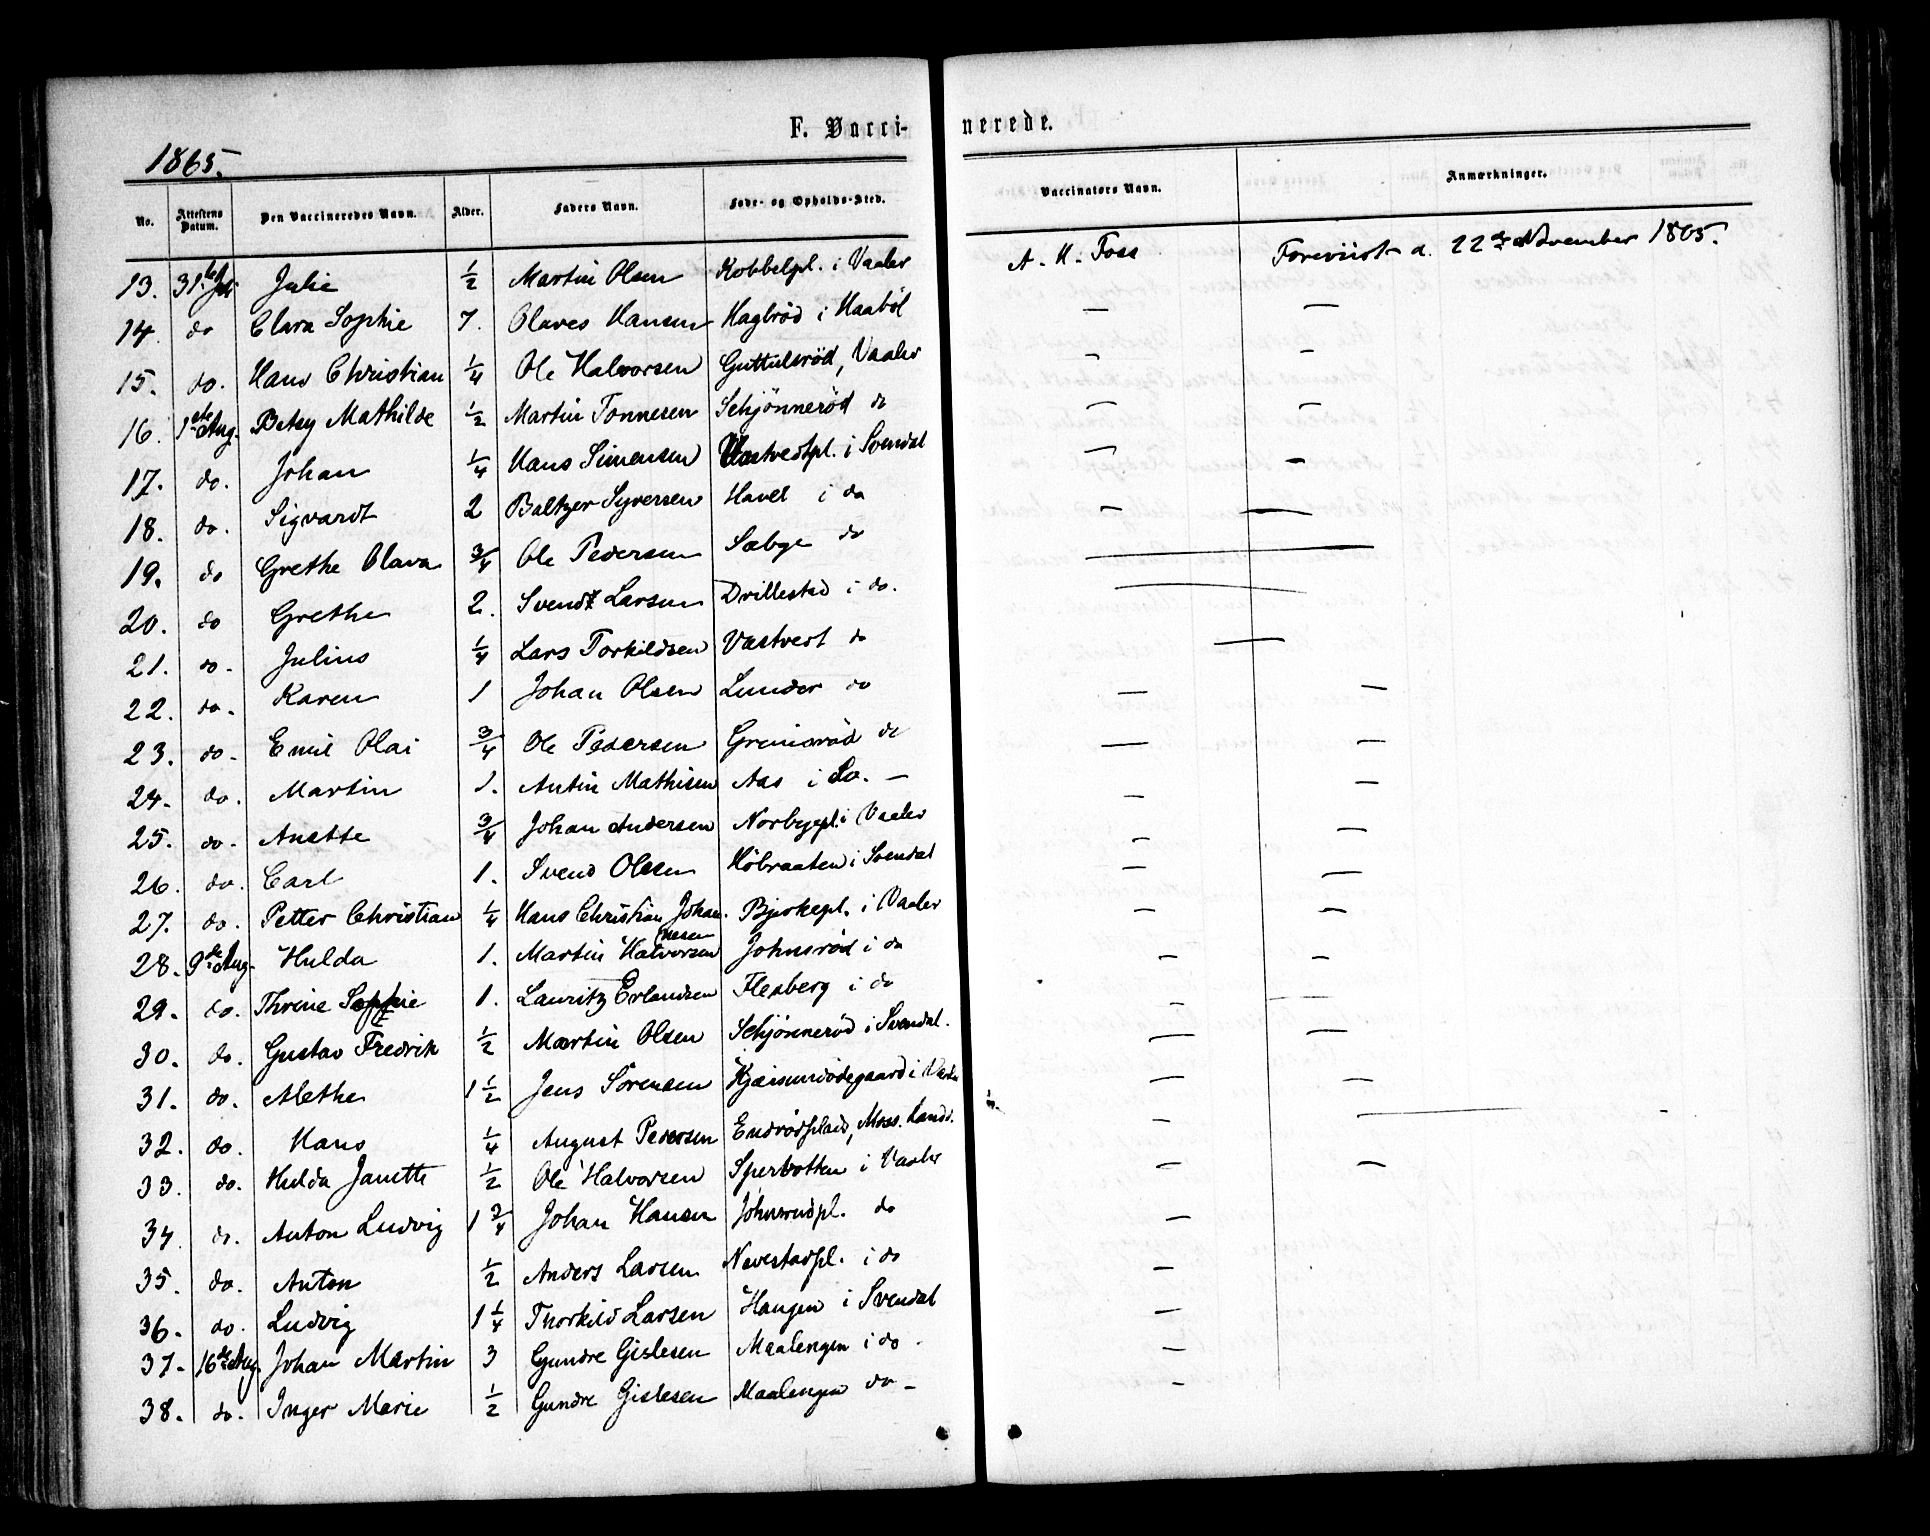 F. Vacci- nerede.
1865.
No. Attestens Datum. Den Vaccineredes Navn. Alder. Faders Navn. Føde- og Opholds-Sted. Vaccinators Navn. Anmærkninger.
13. 31te Juli Julie 1/2 Martin Olsen Kobbelpl. i Vaaler A. H. Foss Foreviist d. 22de November 1865.
14. do Clara Sophie 7. Olaves Hansen Hagbrød i Haabøl — —
15. do. Hans Christian 1/4 Ole Halvorsen Guttulsrød, Vaaler — —
16. 1ste Aug. Betsy Mathilde 1/2 Martin Tonnesen Schjønnerød do — —
17. do. Johan 1/4 Hans Simensen Vastvedtpl. i Svendal — —
18. do. Sigvardt 2 Baltzer Syversen Havel i do — —
19. do Grethe Olava 3/4 Ole Pedersen Sæbye do —
20. do Grethe 2. Svend Larsen Drillestad i do. —
21. do. Julius 1/4 Lars Torkildsen Vastvert do —
22. do. Karen 1 Johan Olsen Lunder do — —
23. do. Emil Olai 3/4 Ole Pedersen Grimsrød do — —
24. do. Martin 1. Antin Mathisen Aas i do. — — —
25. do. Anette 3/4 Johan Andersen Norbyepl. i Vaaler — —
26. do. Carl 1. Svend Olsen Høbraaten i Svendal — —
27. do. Petter Christian 1/4 Hans Christian Johannesen Bjerkepl. i Vaaler — —
28. 9de Aug. Hulda 1. Martin Halvorsen Johnsrød i do — —
29. do. Thrine Sophie 1. Lauritz Erlandsen Flesberg i do — —
30. do. Gustav Fredrik 1/2 Martin Olsen Schjønnerød i Svendal. — —
31. do. Alethe 1 1/2 Jens Sørensen i — —
32. do. Hans 1/4 August Pedersen Endrødplads, Moss. Lands. — — —
33. do. Hulda Janette 1/2 Ole Halvorsen Sperbotten i Vaaler — —
34. do. Anton Ludvig 1 3/4 Johan Hansen Johnsrudpl. do —
35. do. Anton 1/2 Anders Larsen Navestadpl. i do —
36. do. Ludvig 1 1/4 Thorkild Larsen Haugen i Svendal —
37. 16de Aug. Johan Martin 3 Gundre Gislesen Maalengen i do. —
38. do. Inger Marie 1/2 Gundre Gislesen Maalengen do — —